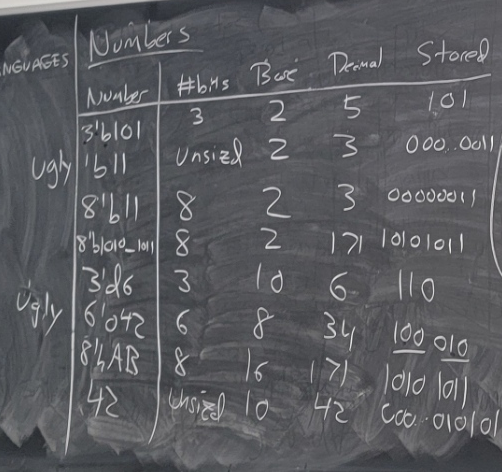 NGUAGES
Numbers
Number #bits Base Decimal Stored
3'b101 3 2 5 101
Ugly 'b11 Unsized 2 3 000..0011
8'b11 8 2 3 00000011
8'b1010_1011 8 2 171 10101011
Ugly 3'd6 3 10 6 110
6'o42 6 8 34 100 010
8'hAB 8 16 171 1010 1011
42 Unsized 10 42 000..010101